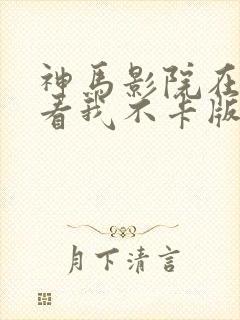 神马影院在
看我不卡版
月下清言